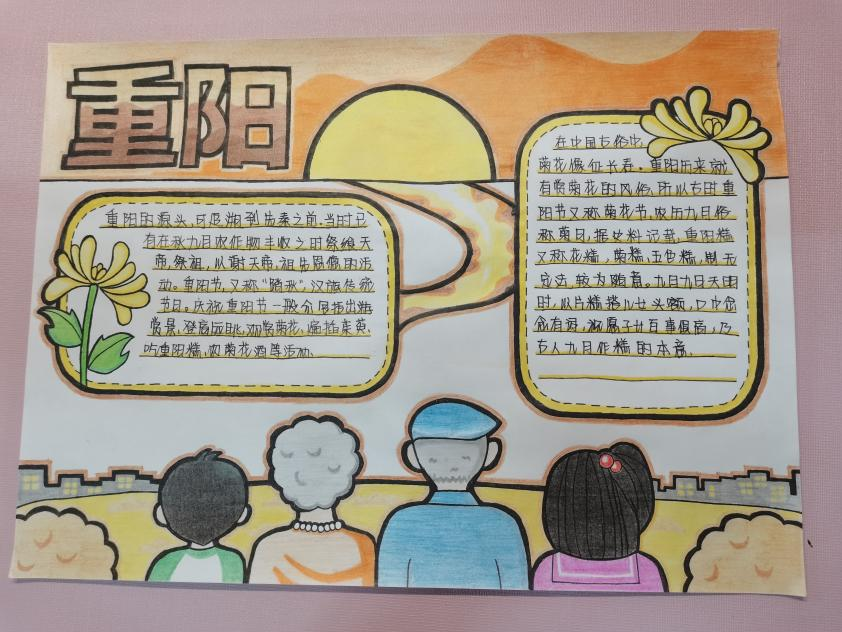 重阳
重阳的源头,可追溯到先秦之前.当时已
有在秋九月农作物丰收之时祭飨天
帝,祭祖,以谢天帝,祖先恩德的活
动。重阳节,又称"踏秋",汉族传统
节日。庆祝重阳节一般会包括出游
赏景,登高远眺,观赏菊花,遍插茱萸,
吃重阳糕,饮菊花酒等活动.
在中国古俗中,
菊花像征长寿。重阳历来就
有赏菊花的风俗,所以古时重
阳节又称菊花节,农历九月俗
称菊月,据史料记载,重阳糕
又称花糕,菊糕,五色糕,制无
定法,较为随意。九月九日天明
时,以片糕搭儿女头额,口中念
念有词,祝愿子女百事俱高,乃
古人九月作糕的本意.